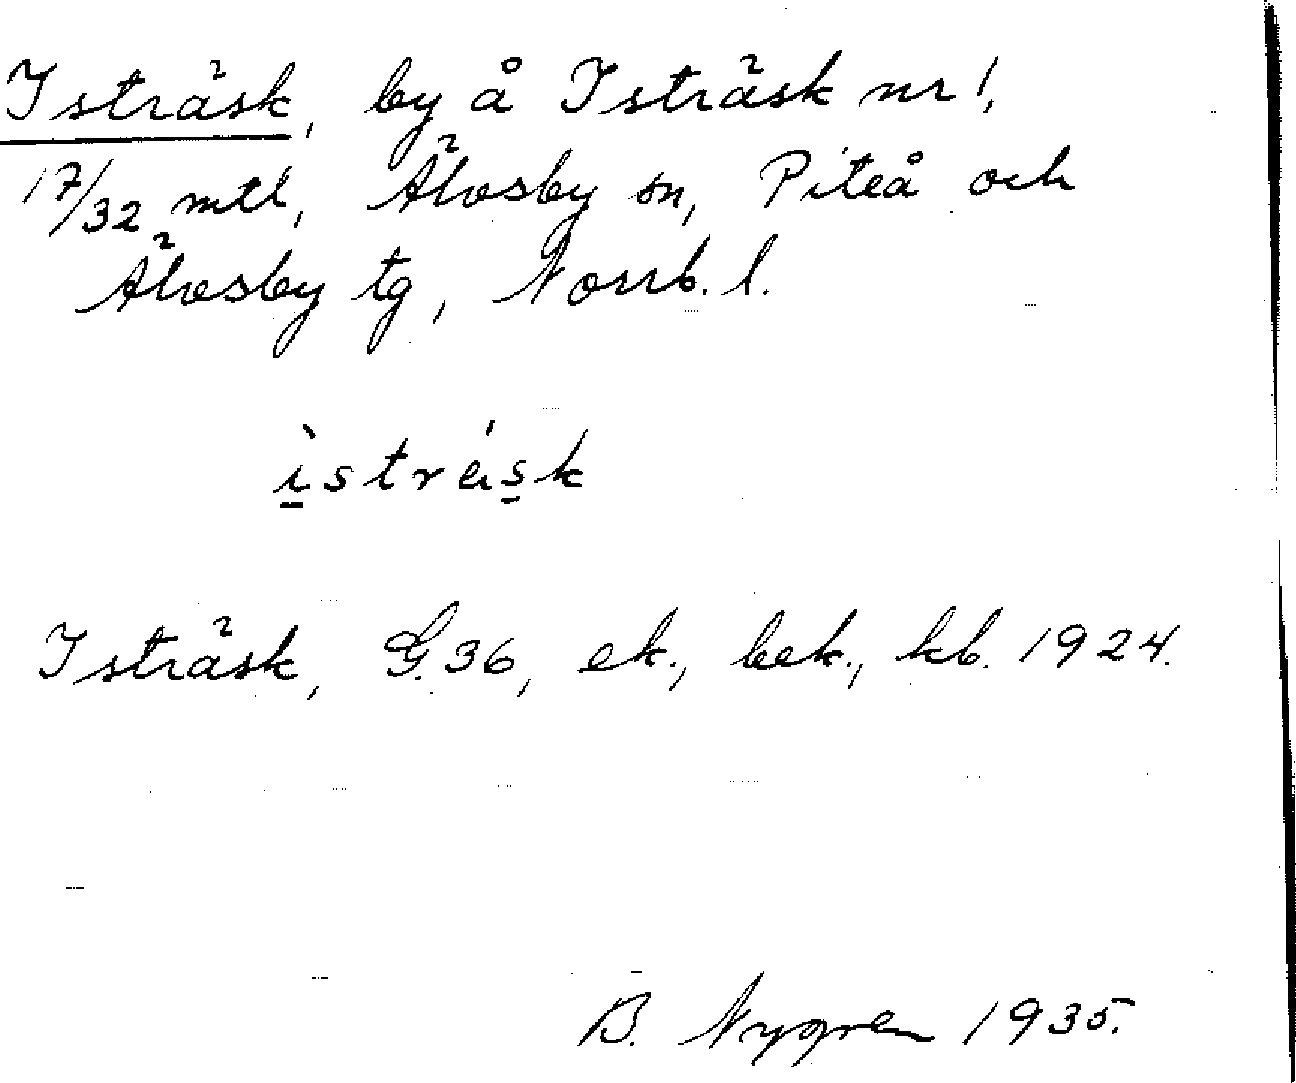 Isträsk, by å Isträsk nr 1,
17/32 mtl, Älvsby sn, Piteå och
Älvsby tg, Norrb. l.
ì̱strä́s̱k
Isträsk, G.36, ek., bek., kb. 1924.
B. Nygren 1935.